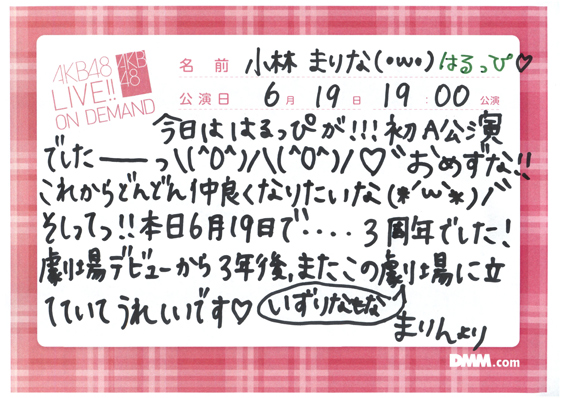 AKB48
LIVE!!
ON DEMAND
AKB
48
名前 小林 まりな(・ω・)はるっぴ♡
公演日 6月19日 19:00公演
今日は はるっぴが!!!初A公演
でしたーーっ\(^O^)/\(^O^)/♡〃おめずな!!
これからどんどん仲良くなりたいな(*´ω`*)/〃
そしてっ!!本日6月19日で‥‥3周年でした!
劇場デビューから3年後,またこの劇場に立
てていてうれしいです♡ いずりなもな
まりんより
DMM.com